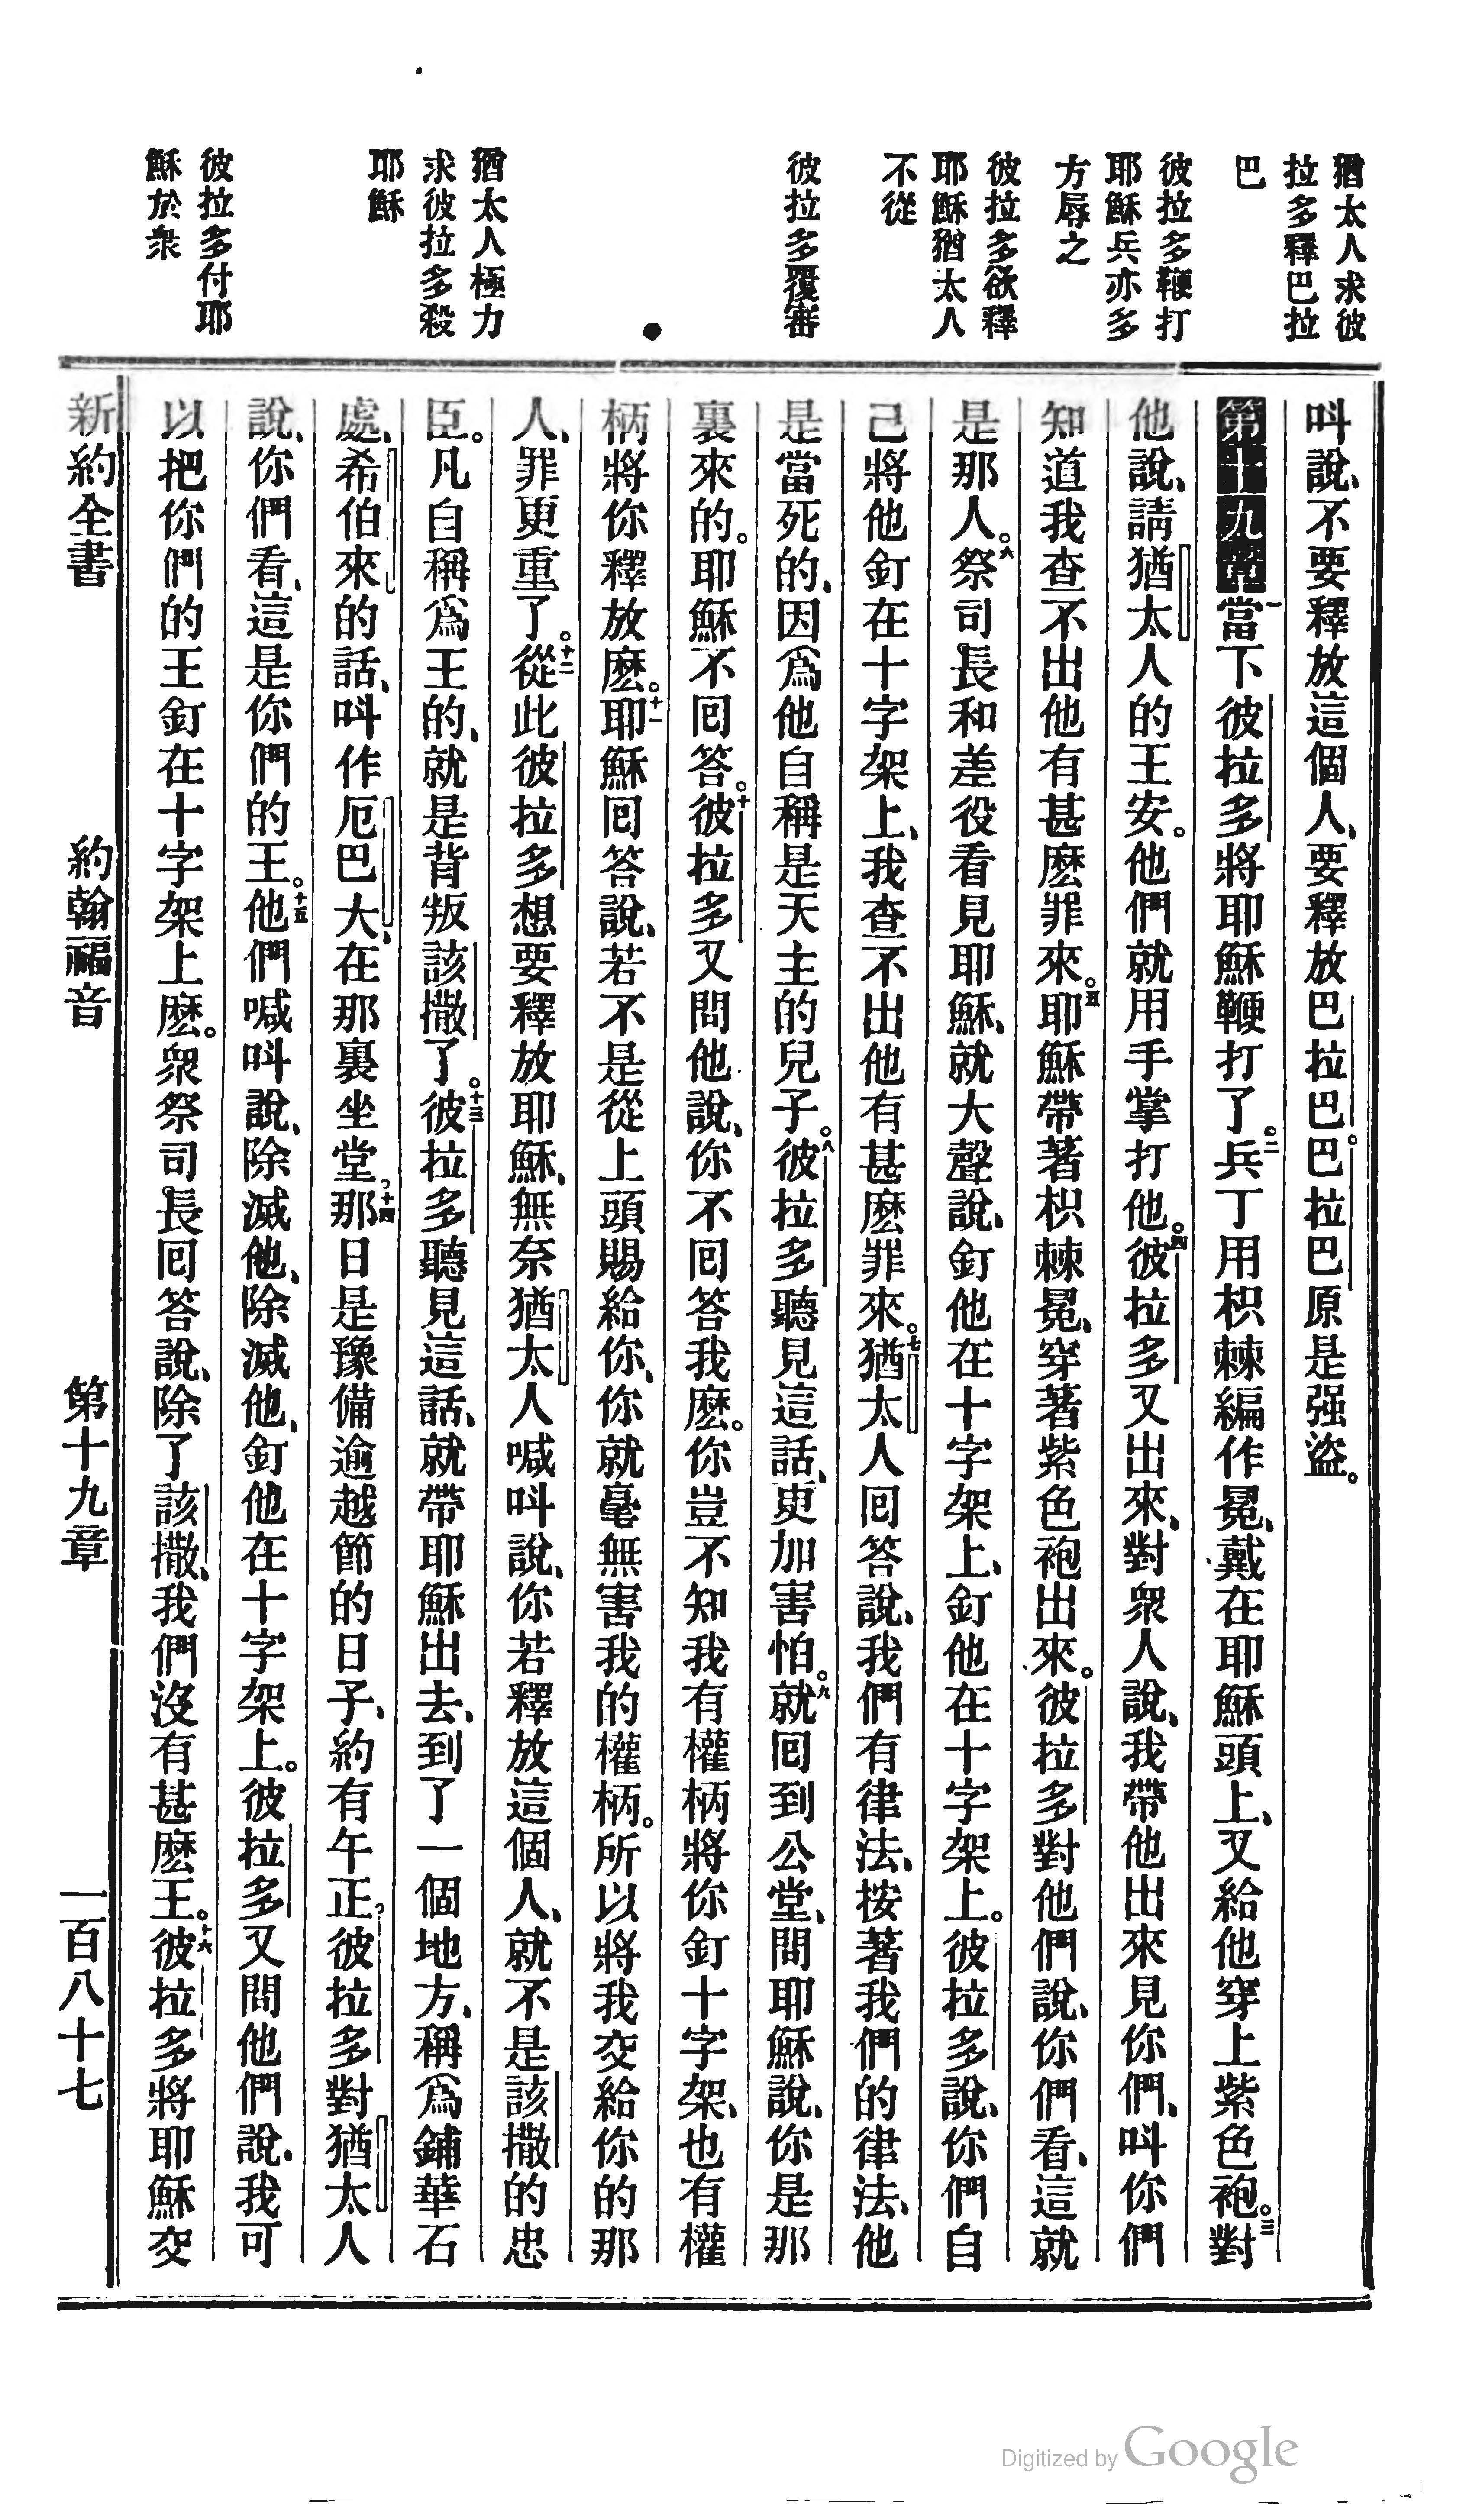 猶太人求彼
拉多釋巴拉
巴
彼拉多鞭打
耶穌兵亦多
方辱之
彼拉多欲釋
耶穌猶太人
不從
彼拉多覆審
猶太人極力
求彼拉多殺
耶穌
彼拉多付耶
穌於衆
叫說、不要釋放這個人、要釋放巴拉巴。巴拉巴原是强盜。
第十九章一當下彼拉多將耶穌鞭打了。二兵丁用枳棘編作冕、戴在耶穌頭上、又給他穿上紫色袍。三對
他說、請猶太人的王安。他們就用手掌打他。四彼拉多又出來、對衆人說、我帶他出來見你們、叫你們
知道我查不出他有甚麽罪來。五耶穌帶著枳棘冕、穿著紫色袍出來。彼拉多對他們說、你們看、這就
是那人。六祭司長和差役看見耶穌、就大聲說、釘他在十字架上、釘他在十字架上。彼拉多說、你們自
己將他釘在十字架上、我查不出他有甚麽罪來。七猶太人回答說、我們有律法、按著我們的律法、他
是當死的、因爲他自稱是天主的兒子。八彼拉多聽見這話、更加害怕。九就回到公堂、問耶穌說、你是那
裏來的。耶穌不回答。十彼拉多又問他說、你不回答我麽。你豈不知我有權柄將你釘十字架、也有權
柄將你釋放麽。十一耶穌回答說、若不是從上頭賜給你、你就毫無害我的權柄。所以將我交給你的那
人、罪更重了。十二從此彼拉多想要釋放耶穌、無奈猶太人喊叫說、你若釋放這個人、就不是該撒的忠
臣。凡自稱爲王的、就是背叛該撒了。十三彼拉多聽見這話、就帶耶穌出去、到了一個地方、稱爲鋪華石
處、希伯來的話、叫作厄巴大、在那裏坐堂。十四那日是豫備逾越節的日子、約有午正。彼拉多對猶太人
說、你們看、這是你們的王。十五他們喊叫說、除滅他、除滅他、釘他在十字架上。彼拉多又問他們說、我可
以把你們的王釘在十字架上麽。衆祭司長回答說、除了該撒、我們沒有甚麽王。十六彼拉多將耶穌交
新約全書 約翰福音 第十九章 一百八十七
Digitized by Google